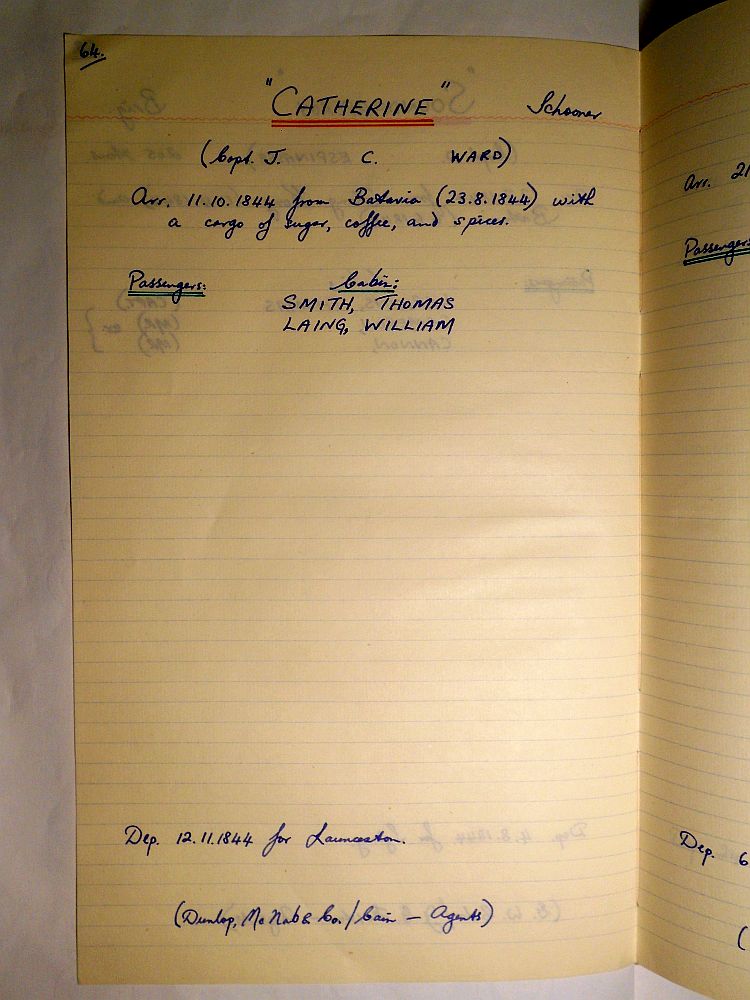 64.
"CATHERINE" Schooner
(Capt. J. C. WARD)
Arr. 11.10.1844 from Batavia (23.8.1844) with
a cargo of sugar, coffee, and spices.
Passengers: Cabin:
SMITH, THOMAS
LAING, WILLIAM
Dep. 12.11.1844 for Launceston.
(Dunlop, McNab & Co. / Cain – Agents)
Arr. 21
Passengers
Dep. 6
(